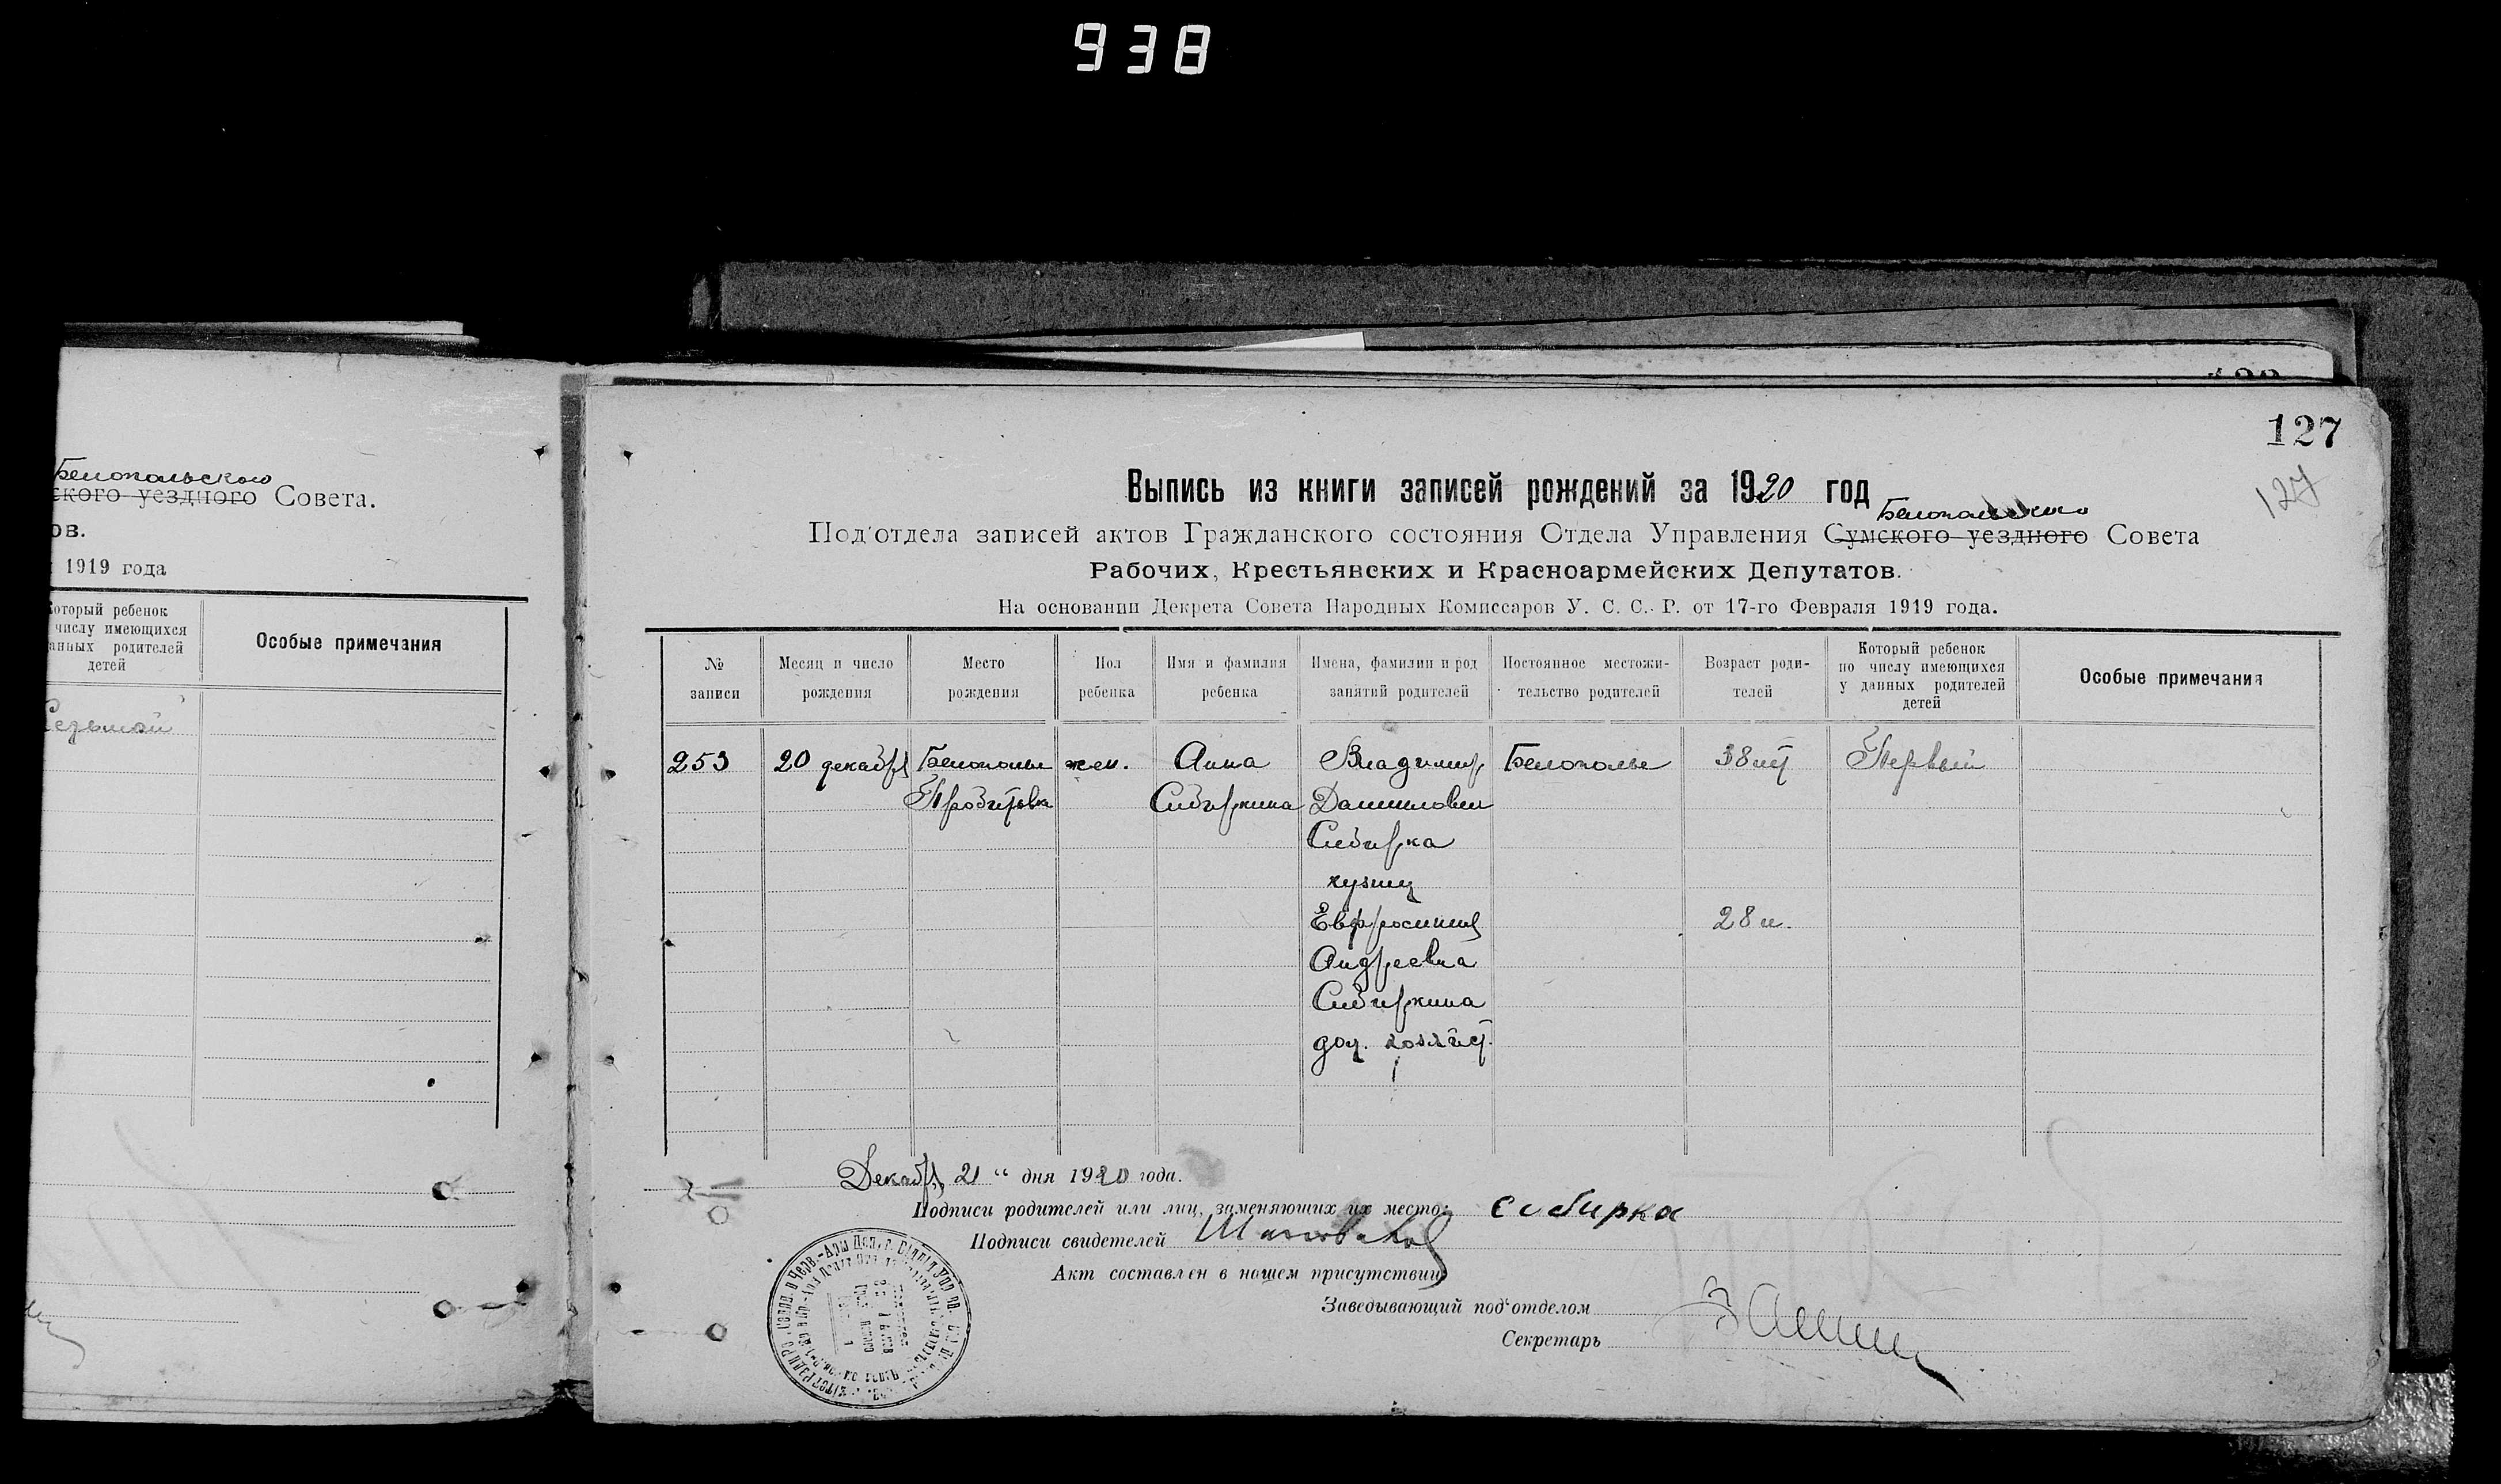 938
Белопольского
ского уездного Совета.
ов.
1919 года
Который ребенок
числу имеющихся
данных родителей
детей
Особые примечания
Седьмой
127
127
Выпись из книги записей рождений за 1920 год
Белопольского
Под'отдела записей актов Гражданского состояния Отдела Управления Сумского уездного Совета
Рабочих, Крестьянских и Красноармейских Депутатов.
На основании Декрета Совета Народных Комиссаров У. С. С. Р. от 17-го Февраля 1919 года.
№ записи
Месяц и число рождения
Место рождения
Пол ребенка
Имя и фамилия ребенка
Имена, фамилии и род занятий родителей
Постоянное местожительство родителей
Возраст родителей
Который ребенок по числу имеющихся у данных родителей детей
Особые примечания
253 20 декабря Белополье жен. Анна Владимир Белополье 38 лет Первый
Сибиркина Данилович
Сибирка
кузнец
Евфросиния 28 л.
Андреевна
Сибиркина
дом. хозяйст.
Декабря 21 “ дня 1920 года.
Подписи родителей или лиц, заменяющих их место: сибирка
Подписи свидетелей
Акт составлен в нашем присутствии
Заведывающий под'отделом
Секретарь